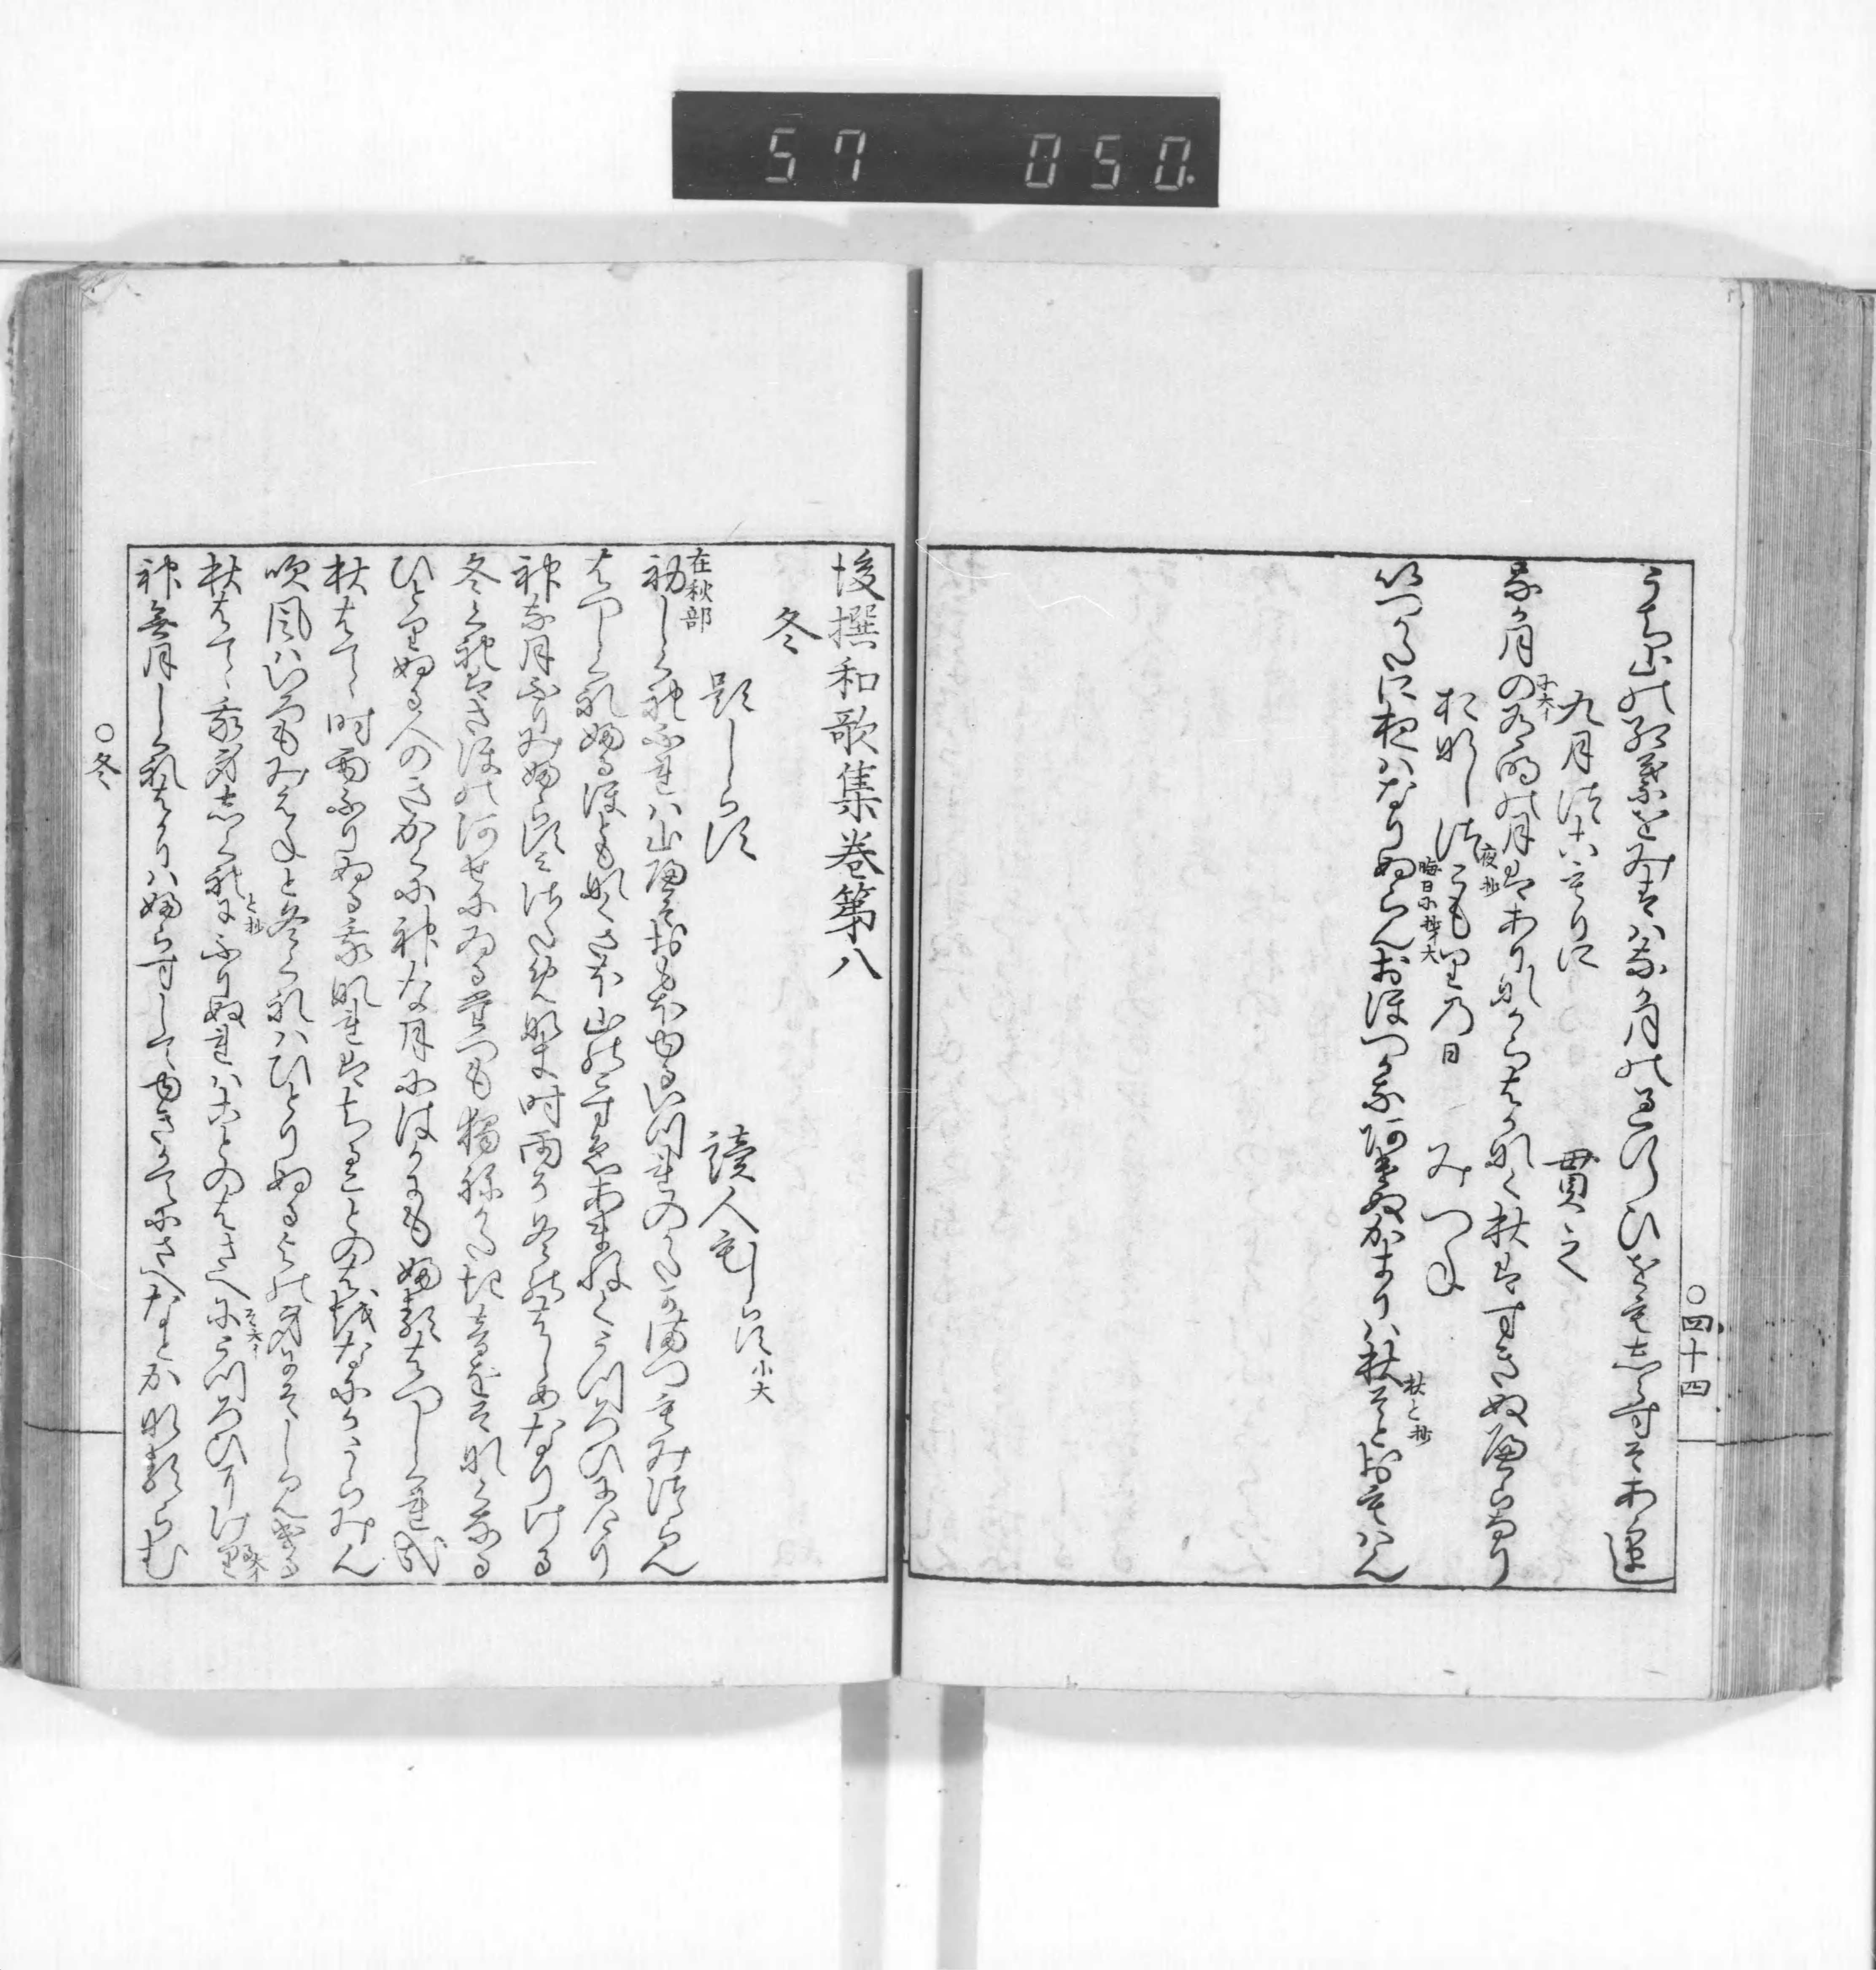 57 050.
〇四十四
うち山の紅葉をみすは長月のすきゆくひをもしらすそあらまし
九月つこもりに 貫之
長月の有明の月はありなからはかなく秋はすきぬへらなり
おなしつこもりの日 みつね
晦日に抄大
いつかたに夜はなりぬらんおほつかなあけぬかきりは秋そとおもはん
秋と抄
後撰和歌集巻第八
冬
題しらす 読人もしらす
小大
在秋部
初しくれふれは山へそおもほゆるいつれのかたかまつもみつらん
はつしくれふるほともなくさほ山のこすゑあまねくうつろひにけり
神な月ふりみふらすみさためなき時雨そ冬のはしめなりける
冬くれはさほの河せにゐるたつも独ねかたき音をそなくなる
ひとりぬる人のきかくに神な月にはかにもふるはつしくれ哉
秋はてゝ時雨ふりぬる我なれはちることのはをなにかうらみん
吹風はいろもみえねと冬くれはひとりぬるよの身にそしみける
秋はてゝ我身しくれにふりぬれはことのはさへにうつろひにけり
神無月しくれはかりはふらすしてゆきかてにさへなとかなるらむ
〇冬